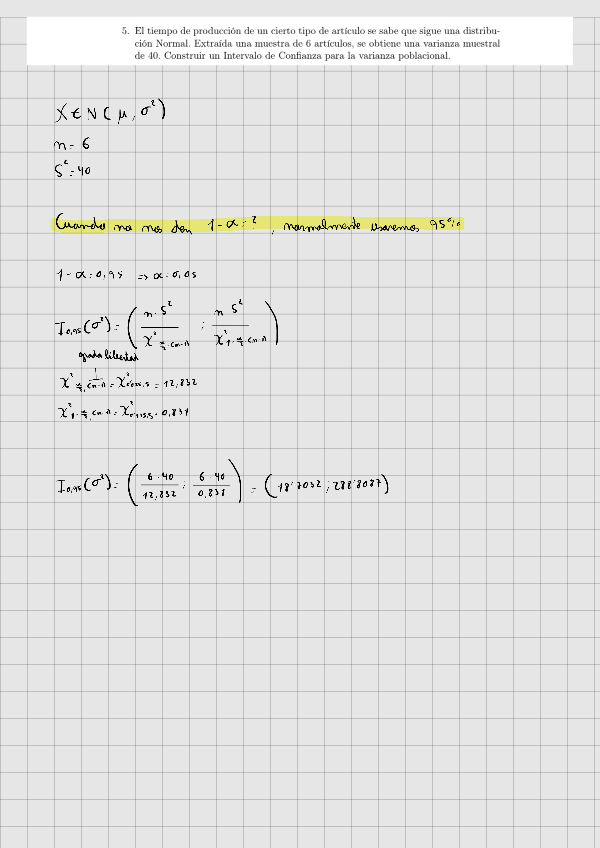 5. El tiempo de producción de un cierto tipo de artículo se sabe que sigue una distribu-
ción Normal. Extraída una muestra de 6 artículos, se obtiene una varianza muestral
de 40. Construir un Intervalo de Confianza para la varianza poblacional.
X ∈ N ( μ , σ² )
n = 6
S² = 40
Cuando no nos den 1 - α = ? , normalmente usaremos 95%
1 - α = 0,95 => α = 0,05
I₀,₉₅(σ²) = ( n · S² / χ² α/2, (n-1) ; n S² / χ² 1-α/2, (n-1) )
grados libertad
χ² α/2, (n-1) = χ² 0'025,5 = 12,832
χ² 1-α/2, (n-1) = χ² 0'975,5 = 0,831
I₀,₉₅(σ²) = ( 6 · 40 / 12,832 ; 6 · 40 / 0,831 ) = ( 18'7032 ; 288'8087 )